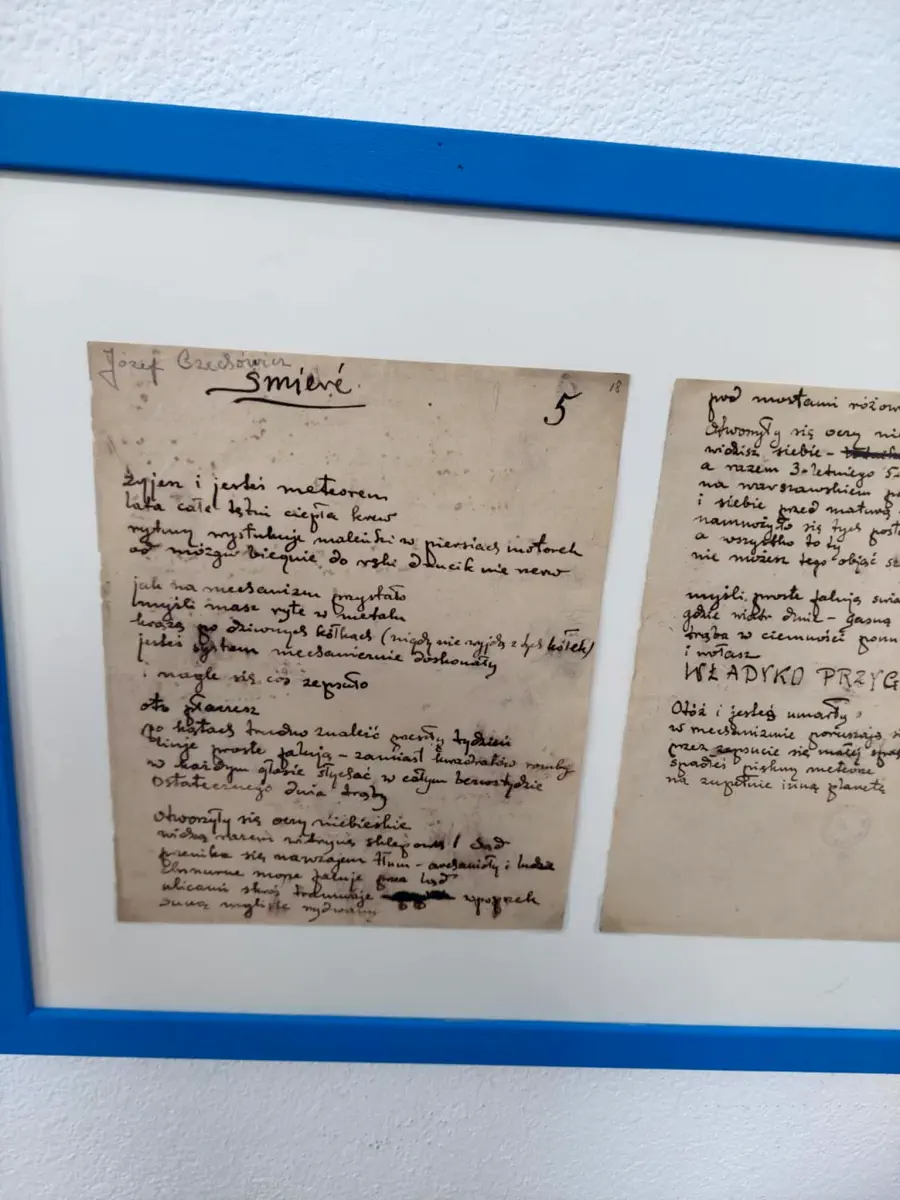 Józef Czechowicz
śmierć
5
18
żyjesz i jesteś meteorem
lata całe tętni ciepła krew
rytmy wystukuje maleńki w piersiach motorek
od mózgu biegnie do ręki drucik nie nerw
jak na mechanizm przystało
myśli masz ryte w metalu
krążą po dziwnych kółkach (nigdy nie wyjdą z tych kółek)
jesteś system mechanicznie doskonały
i nagle się coś zepsuło
oto płaczesz
po kątach trudno znaleźć przeszły tydzień
linje proste falują – zamiast kwadratów romby
w każdym głosie słychać w całym bezwstydzie
ostatecznego dnia trąby
otworzyły się oczy niebieskie
widzą razem witrynę sklepową i Sąd
przenika się nawzajem tłum – archanioły i ludzie
chmurne morze faluje przez ląd
ulicami skroś tramwaje wpoprzek
suną mgliste rydwany
pod mostami różow
Otworzyły się oczy nie
widzisz siebie –
a razem 3-letniego 5-
na warszawskiem po
i siebie przed maturą
namnożyło się tych post
a wszystko to ty
nie możesz tego objąć s
myśli proste falują
gdzie wiatr dmie – gasną
trąba w ciemność
i wołasz
WŁADYKO PRZYG
Otóż i jesteś umarły
w mechanizmie poruszają s
przez zepsucie się małej
spadłeś piękny meteorze
na zupełnie inną planetę